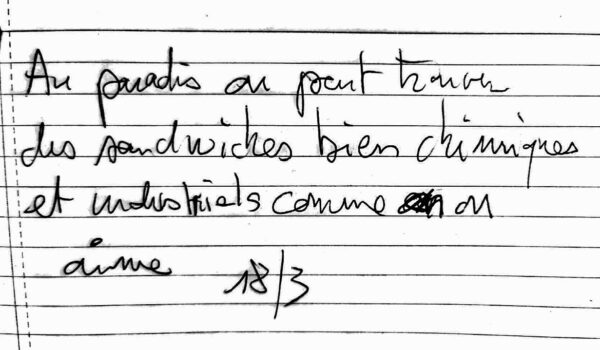 Au paradis on peut trouver
des sandwiches bien chimiques
et industriels comme on
aime 18/3